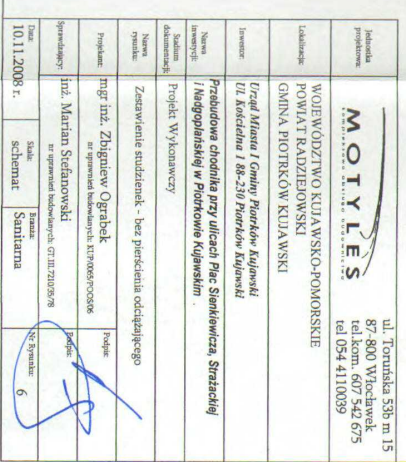 Jednostka projektowa:
MOTYLES
kompleksowa obsługa budownictwa
ul. Toruńska 53b m 15
87-800 Włocławek
tel.kom. 607 542 675
tel 054 4110039
Lokalizacja:
WOJEWÓDZTWO KUJAWSKO-POMORSKIE
POWIAT RADZIEJOWSKI
GMINA PIOTRKÓW KUJAWSKI
Inwestor:
Urząd Miasta I Gminy Piotrków Kujawski
Ul. Kościelna 1 88-230 Piotrków Kujawski
Nazwa inwestycji:
Przebudowa chodnika przy ulicach Plac Sienkiewicza, Strażackiej
i Nadgoplańskiej w Piotrkowie Kujawskim .
Stadium dokumentacji:
Projekt Wykonawczy
Nazwa rysunku:
Zestawienie studzienek - bez pierścienia odciążającego
Projektant:
mgr inż. Zbigniew Ograbek
nr uprawnień budowlanych: KUP/0065/POOS/06
Podpis:
Sprawdzający:
inż. Marian Stefanowski
nr uprawnień budowlanych: GT.III.7210/35/78
Podpis:
Data:
10.11.2008 r.
Skala:
schemat
Branża:
Sanitarna
Nr Rysunku:
6